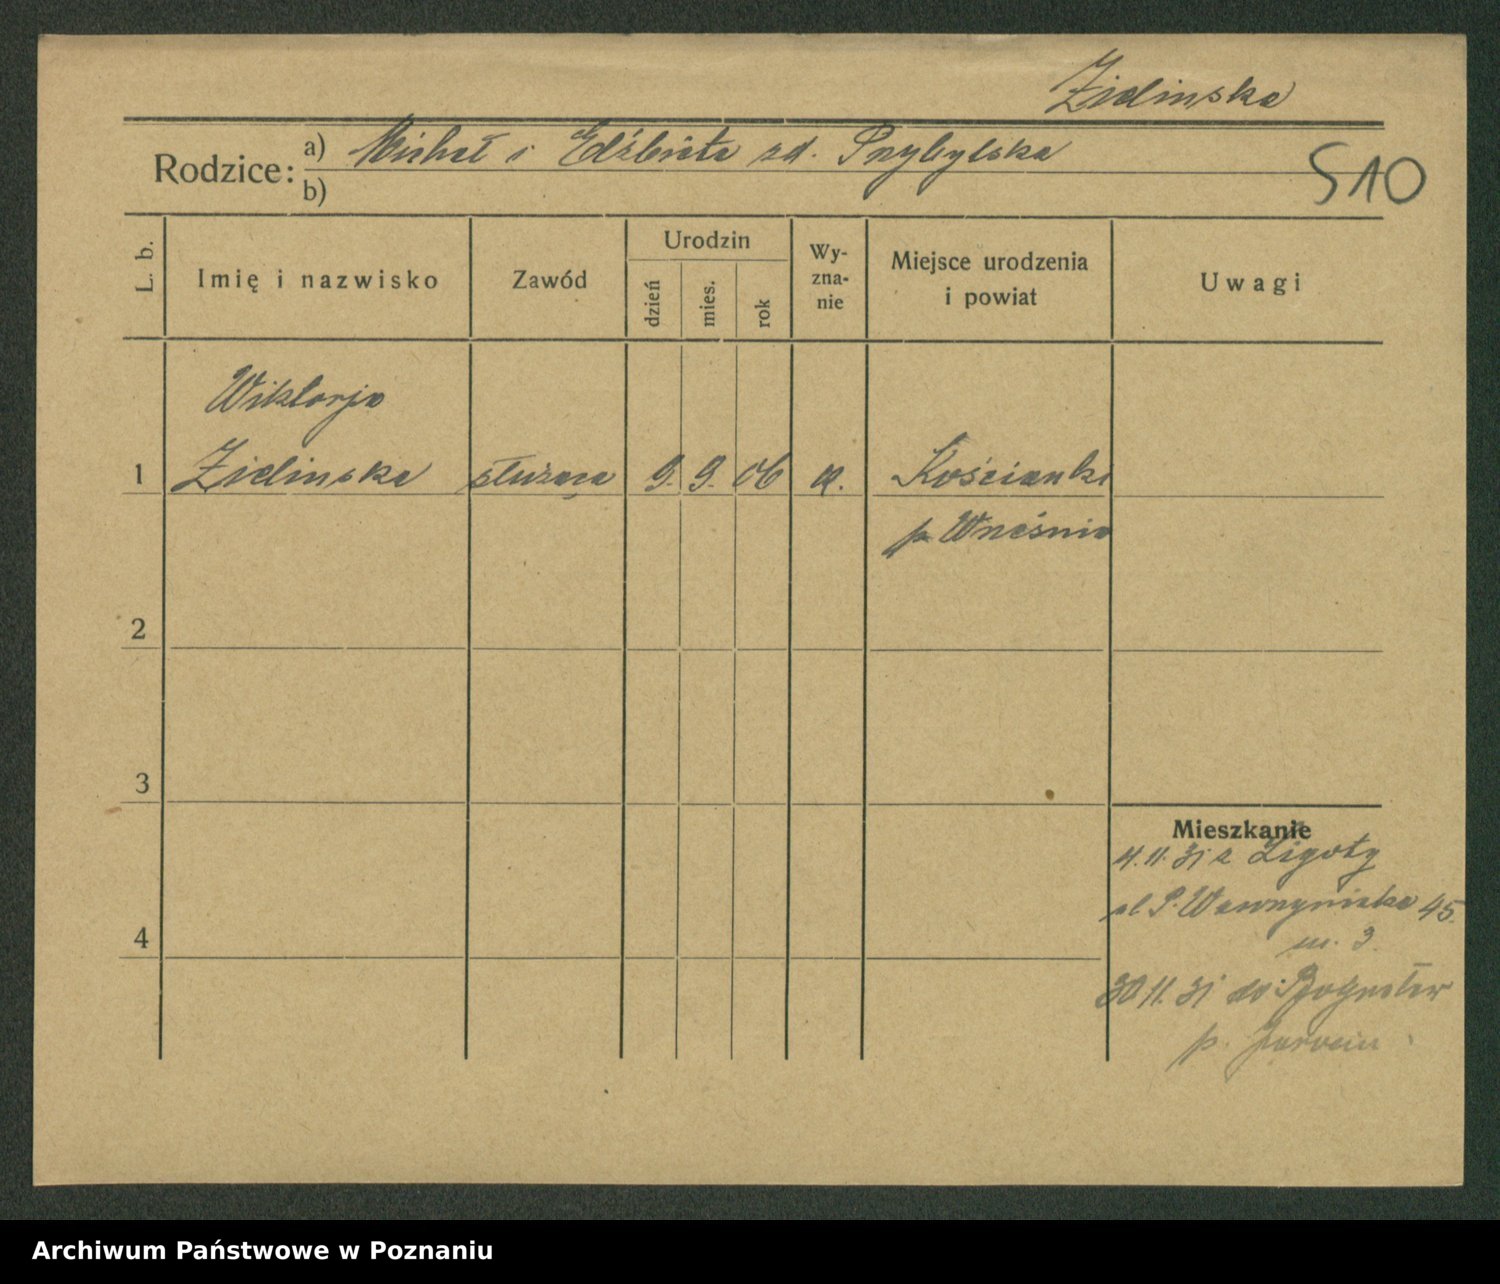 Zielinska
Rodzice: a) Michał i Elżbieta zd. Przybylska
b)
S10
L. b.
Imię i nazwisko
Zawód
Urodzin
dzień
mies.
rok
Wy-
zna-
nie
Miejsce urodzenia
i powiat
Uwagi
Wiktorja
1 Zielinska służąca 9. 9. 06 kt. Kościanki
p. Września
2
3
4
Mieszkanie
4.11.31 z Zigoty
ul. Wawrzyniaka 45.
m. 3.
30 11. 31 do
p. Jarocin
Archiwum Państwowe w Poznaniu